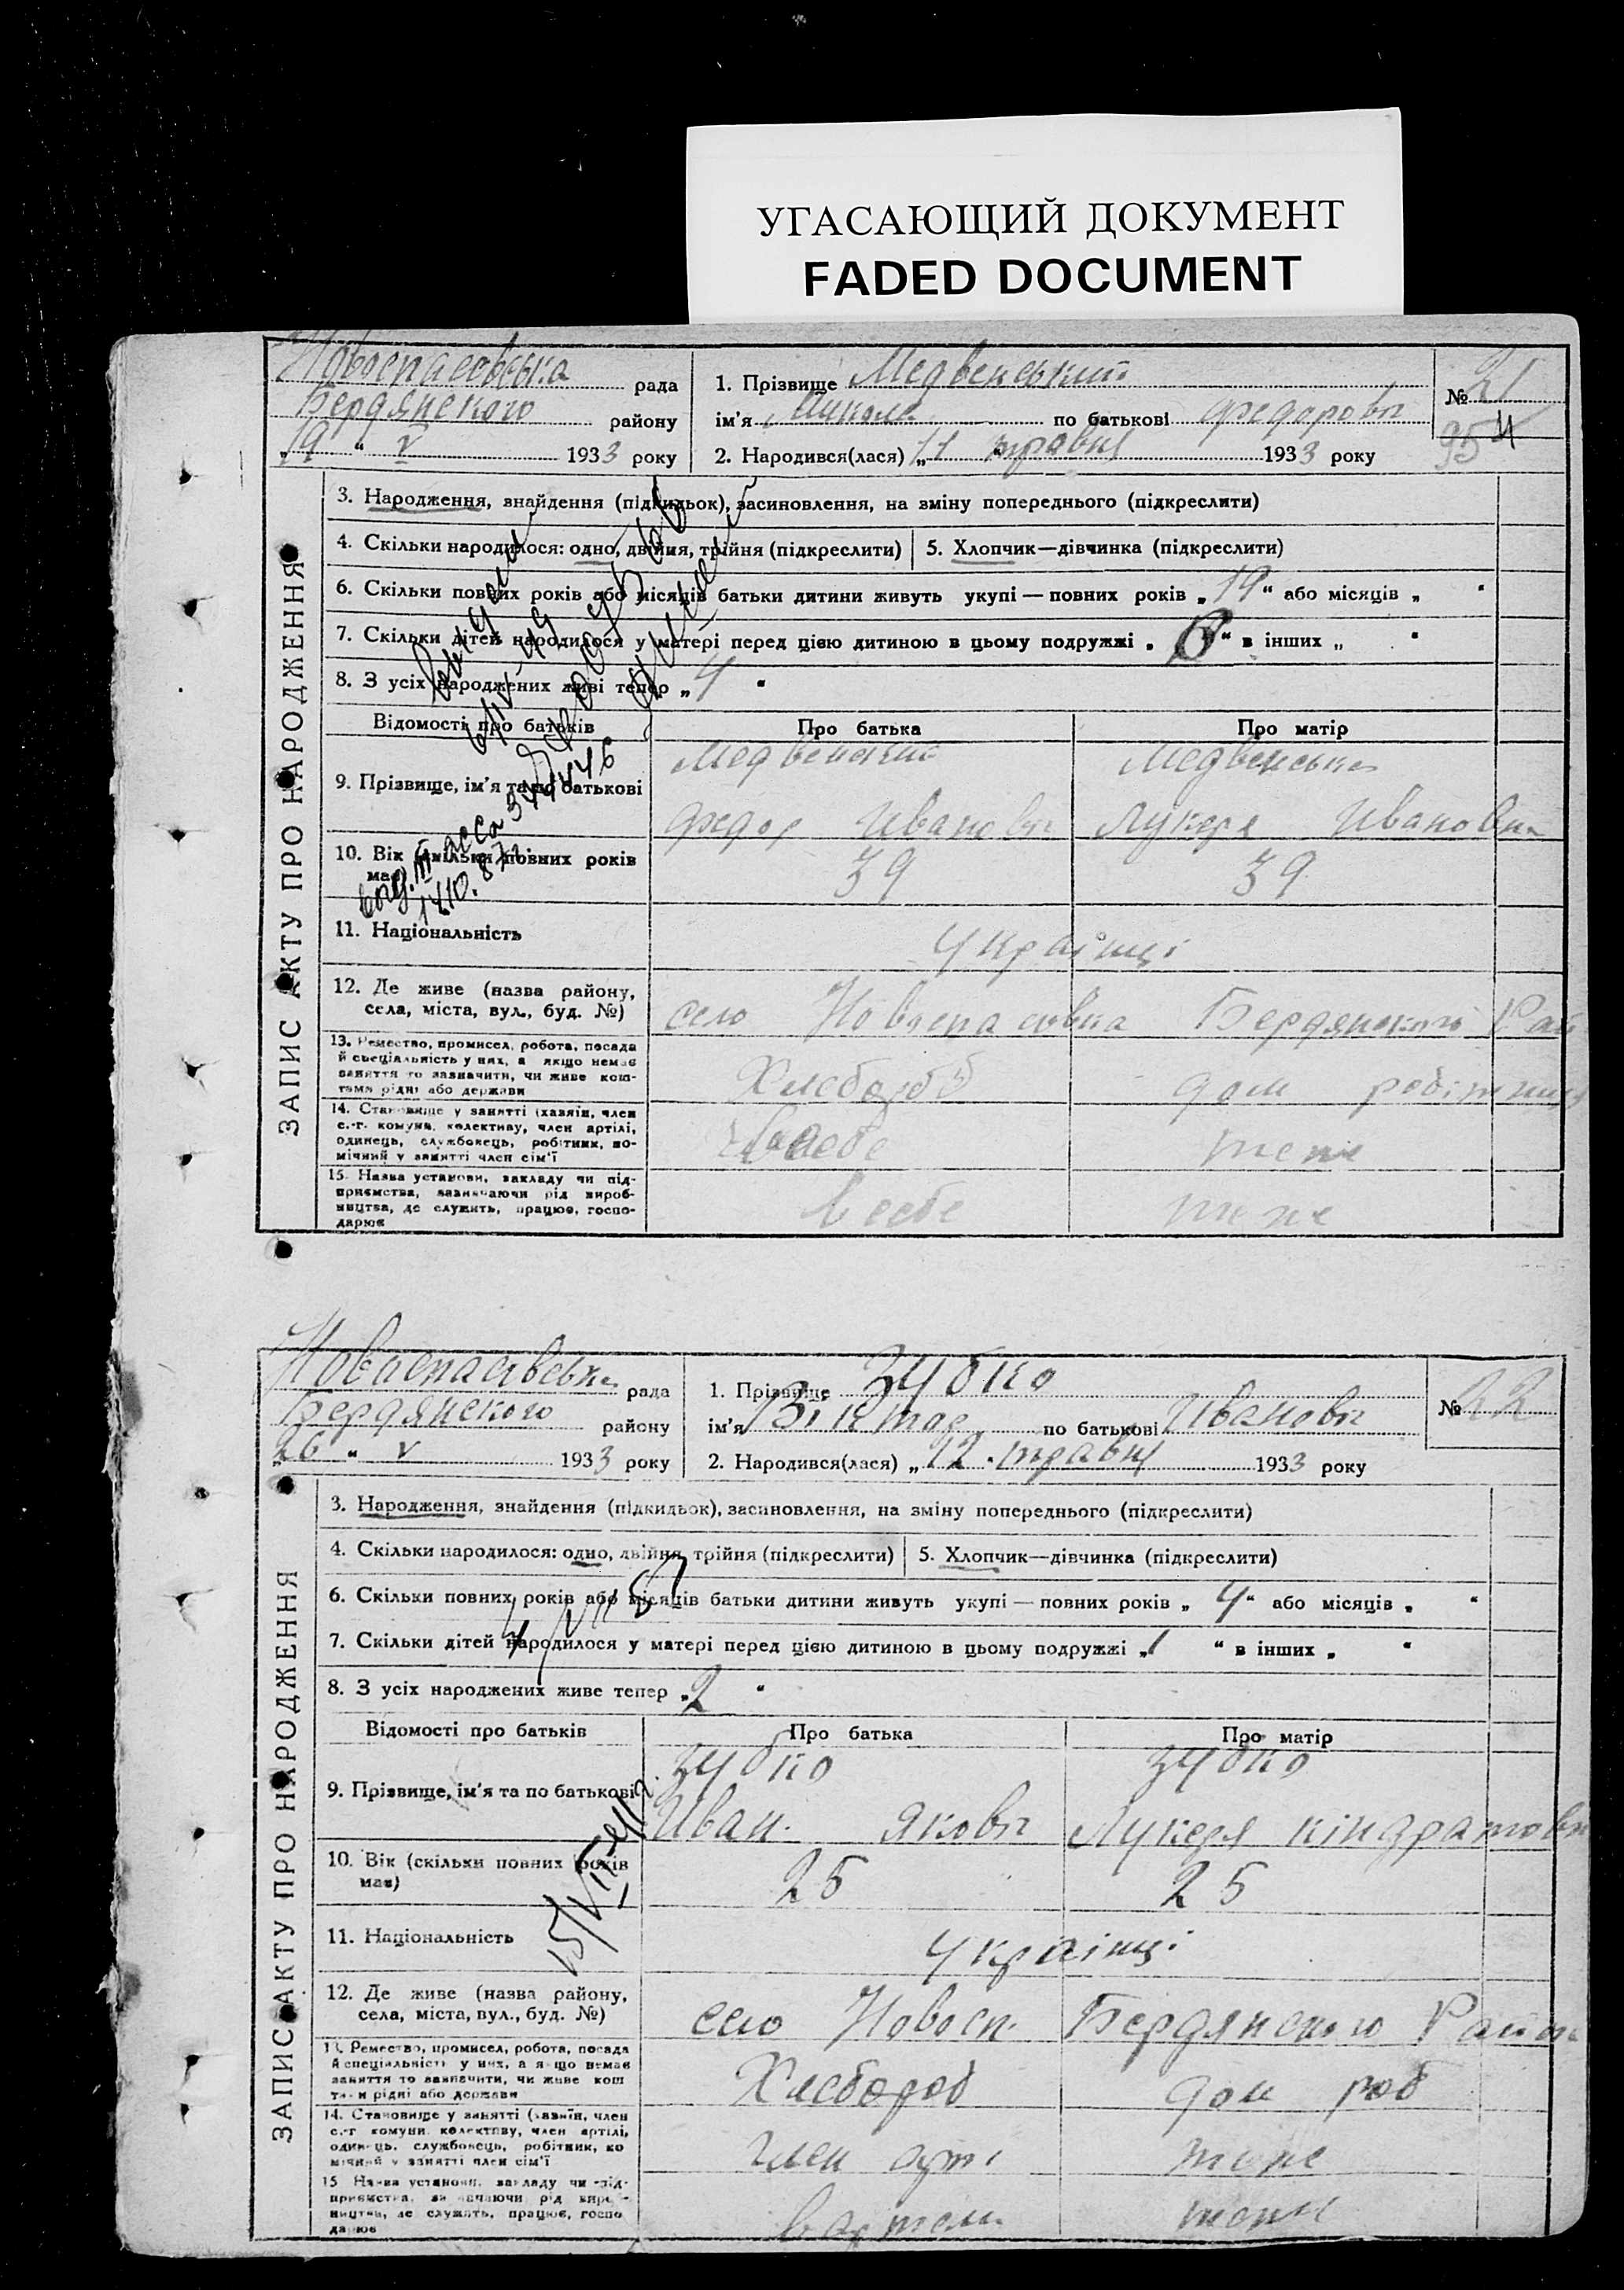 УГАСАЮЩИЙ ДОКУМЕНТ
FADED DOCUMENT
Новоспасовська рада
Бердянского району
„19 “ V 1933 року
1. Прізвище Медвенський
ім'я Микола по батькові Федорови
2. Народився(лася) „11 травня 1933 року
№ 21
95
ЗАПИС АКТУ ПРО НАРОДЖЕННЯ
3. Народження, знайдення (підкидьок), засиновлення, на зміну попереднього (підкреслити)
4. Скільки народилося: одно, двійня, трійня (підкреслити)
5. Хлопчик—дівчинка (підкреслити)
6. Скільки повних років або місяців батьки дитини живуть укупі — повних років „ 19 “ або місяців „ “
7. Скільки дітей народилося у матері перед цією дитиною в цьому подружжі „ 6 “ в інших „ “
8. З усіх народжених живі тепер „ 4 “
Відомості про батьків
Про батька
Про матір
9. Прізвище, ім'я та по батькові
Медвенский
Медвенська
Федор Ивановы
Лукеря Ивановна
10. Вік (скільки повних років має)
39
39
11. Національність
українці
12. Де живе (назва району,
села, міста, вул., буд. №)
село Новоспасовка Бердянского Рай
13. Ремество, промисел, робота, посада
й спеціальність у них, а якщо немає
заняття то зазначити, чи живе кош-
тами рідні або держави
Хлебороб
дом робітниця
14. Становище у занятті (хазяїн, член
с.-г. комуни, колективу, член артілі,
одинець, службовець, робітник, по-
мічний у занятті член сім'ї
теже
15. Назва установи, закладу чи під-
приємства, зазначаючи рід вироб-
ництва, де служить, працює, госпо-
дарює
в себе
теже
Новоспасівська рада
Бердянского району
„26 “ V 1933 року
1. Прізвище Зубко
ім'я Віктор по батькові Ивановы
2. Народився(лася) „ 12 . травня 1933 року
№ 22
ЗАПИС АКТУ ПРО НАРОДЖЕННЯ
3. Народження, знайдення (підкидьок), засиновлення, на зміну попереднього (підкреслити)
4. Скільки народилося: одно, двійня, трійня (підкреслити)
5. Хлопчик—дівчинка (підкреслити)
6. Скільки повних років або місяців батьки дитини живуть укупі — повних років „ 4 “ або місяців „ “
7. Скільки дітей народилося у матері перед цією дитиною в цьому подружжі „ 1 “ в інших „ “
8. З усіх народжених живе тепер „ 2 “
Відомості про батьків
Про батька
Про матір
9. Прізвище, ім'я та по батькові
Зубко
Зубко
Иван. Яковы
Лукеря Кіндратовн
10. Вік (скільки повних років
має)
25
25
11. Національність
українці
12. Де живе (назва району,
села, міста, вул., буд. №)
село Новосп. Бердянского Район
13. Ремество, промисел, робота, посада
й спеціальність у них, а якщо немає
заняття то зазначити, чи живе кош
тами рідні або держави
Хлебороб
дом роб
14. Становище у занятті (хазяїн, член
с.-г комуни, колективу, член артілі,
одинець, службовець, робітник, по
мічний у занятті член сім'ї
член арті
теже
15 Назва установи, закладу чи під-
приємства, зазначаючи рід вироб-
ництва, де служить, працює, госпо
дарює
в артели
теже